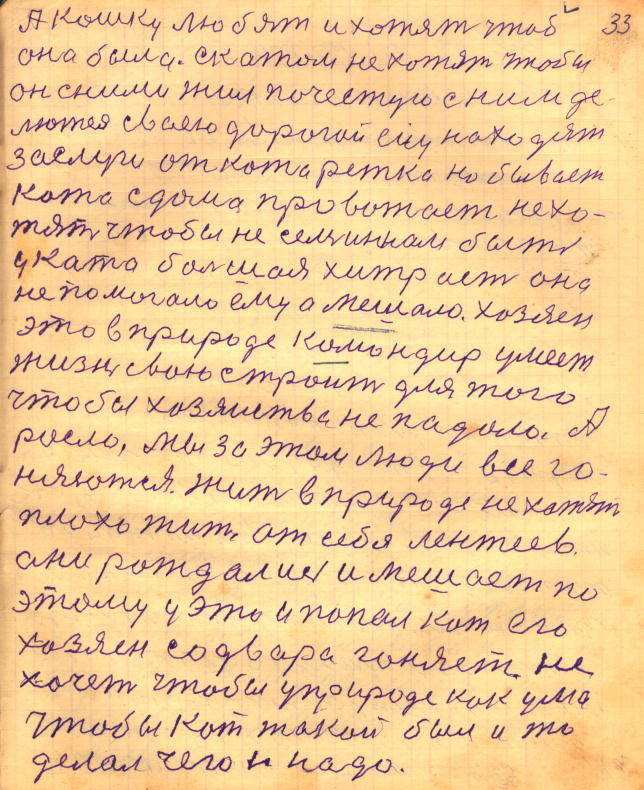 33
А кошку любят и хотят чтоб
она была. с катом не хотят чтобы
он сними жил почестую с ним де-
лютея сваею дорогой ему находят
заслуги от кота ретка но бывает
кота с дома провотает не хо-
тят чтобы не семянам быть
у Ката большая хитраст она
не помогало ёму а мешало. хозяен
это в природе командир умеет
жизнь свою строит для того
чтобы хозяиства не падало. А
росло, мы за этом люди все го-
няются. жит в природе не хотят
плохо жит, от себя лентеев
они рождалис и мешает по
этому у это и попал кот его
хозяен содвара гоняет. не
хочет чтобы у природе как ума
чтобы кот такой был и то
делал чего н надо.